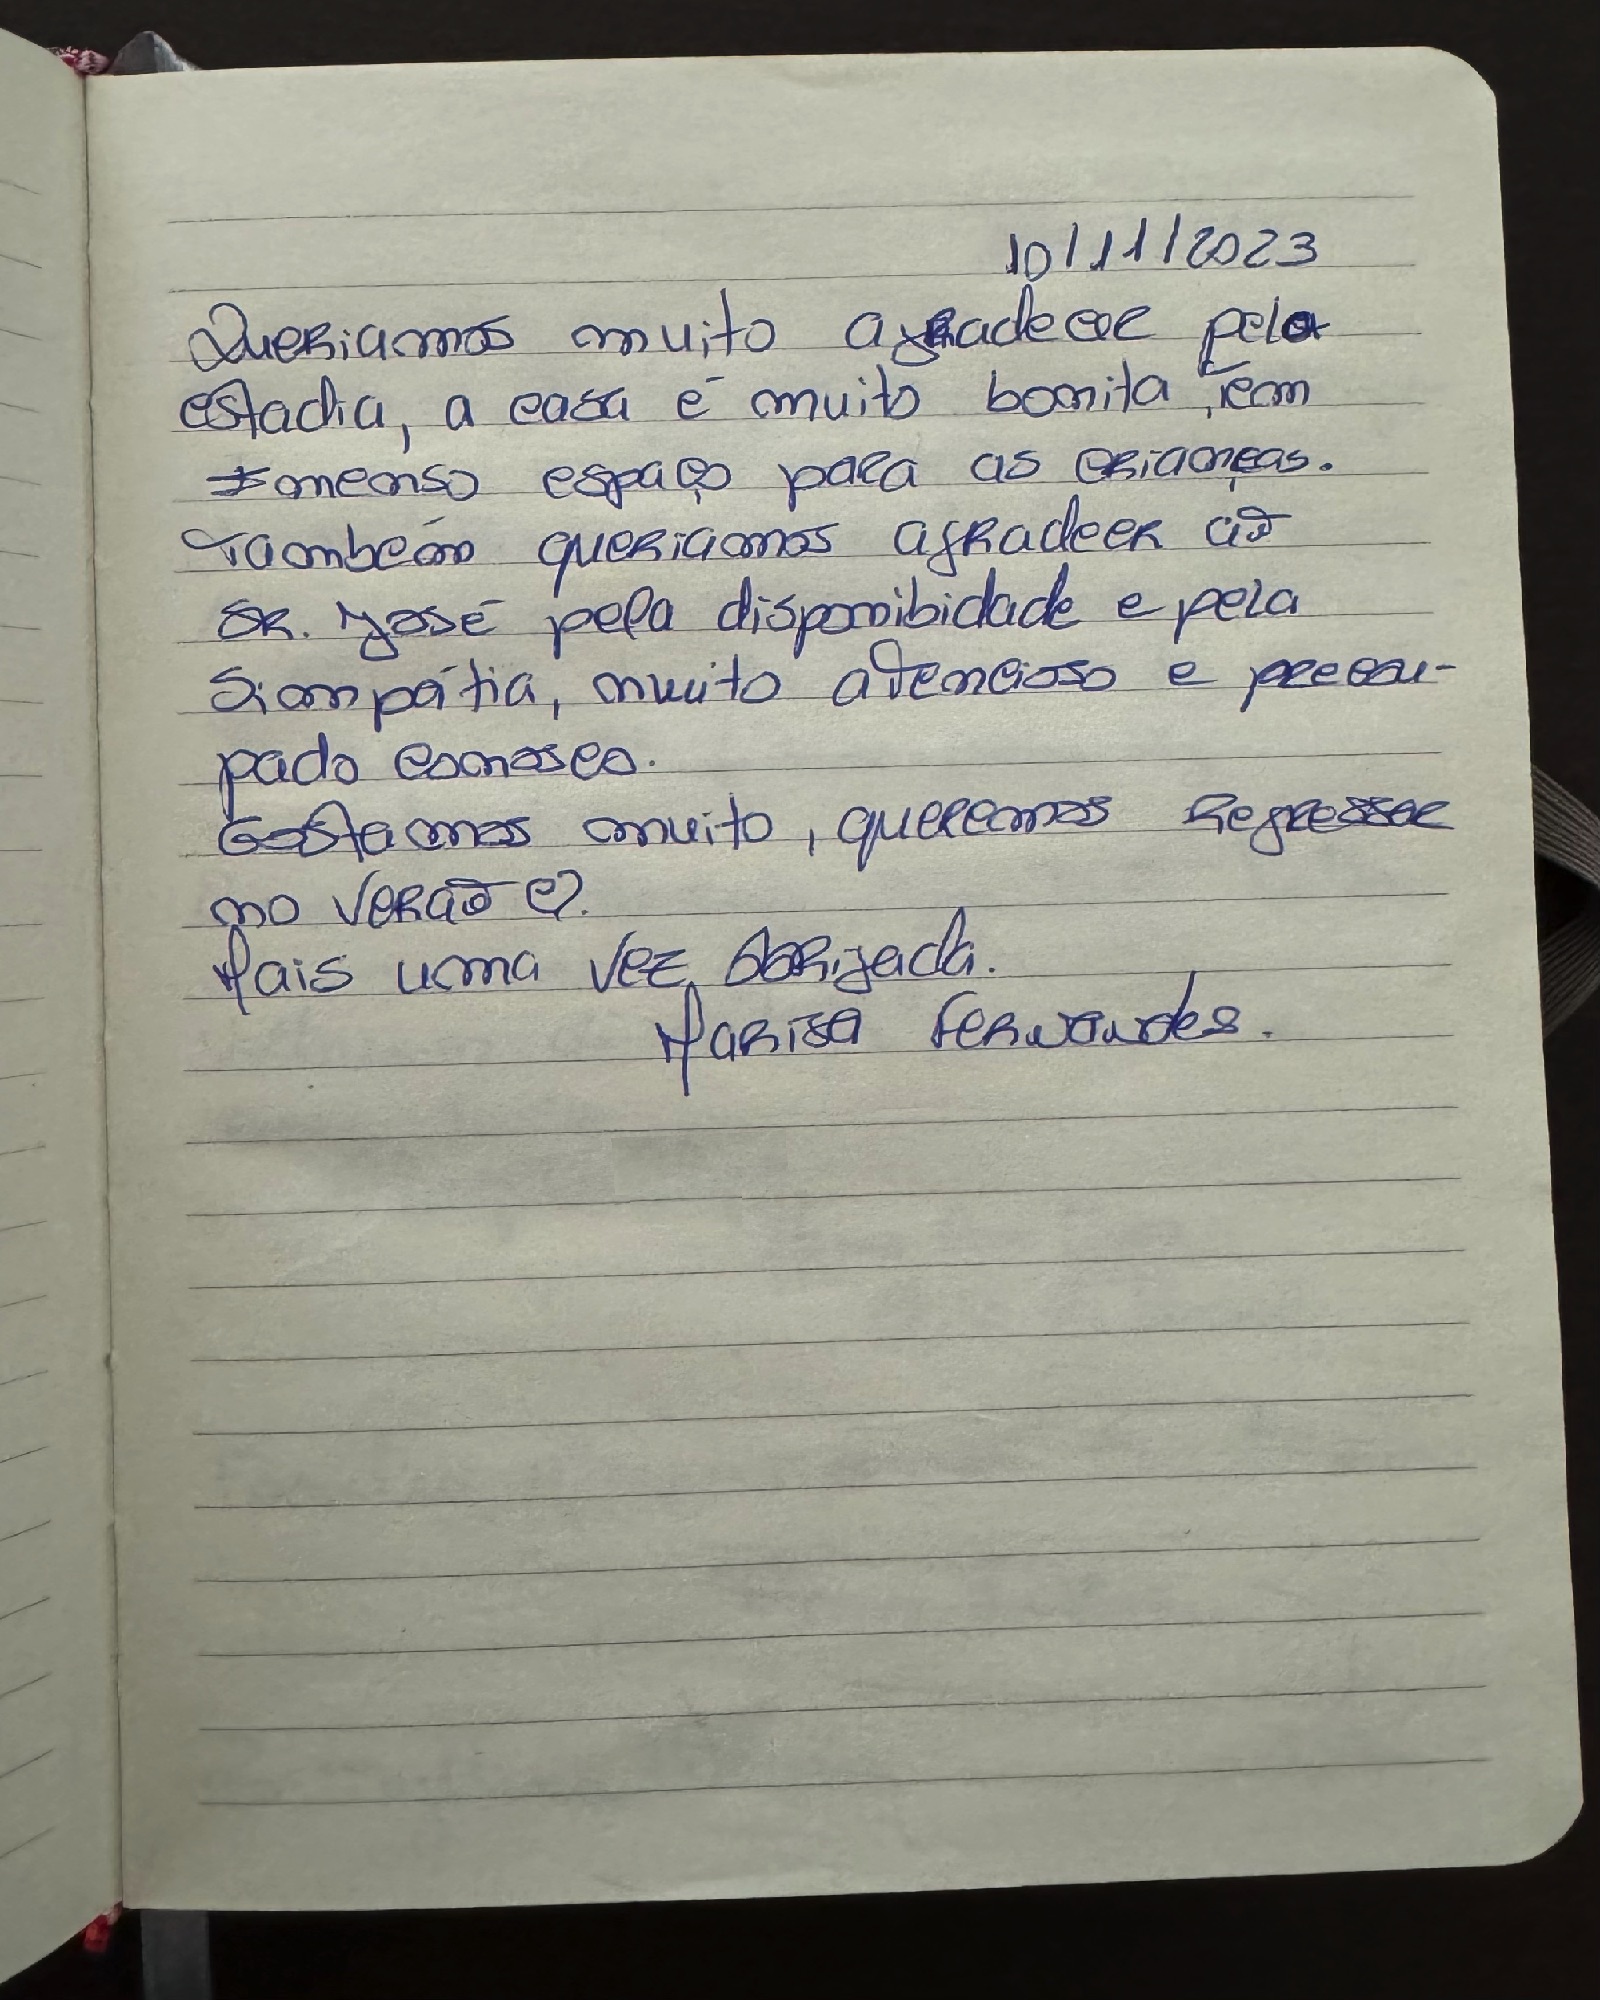 10/11/2023
Queriamos muito agradecer pela
estadia, a casa é muito bonita, tem
imenso espaço para as crianças.
Também queriamos agradeer ao
Sr. José pela disponibidade e pela
Simpátia, muito atencioso e preocu-
pado conosco.
Gostamos muito, queremos Regressar
no verão
Mais uma vez, Obrigada.
Marisa Fernandes.